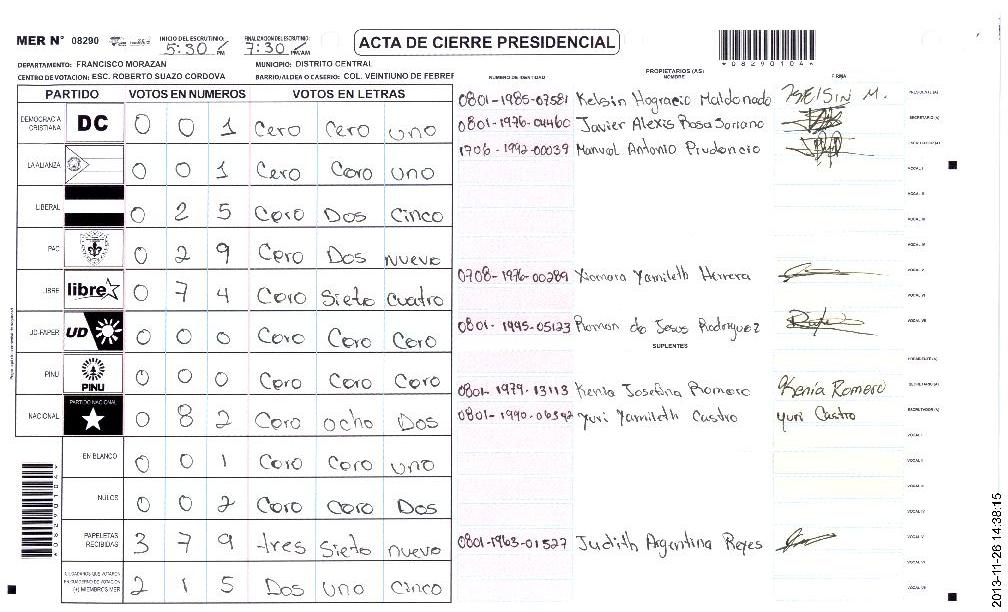 MER N° 08290 INICIO DEL ESCRUTINIO: 5:30 PM FINALIZACION DEL ESCRUTINIO: 7:30 PM/AM ACTA DE CIERRE PRESIDENCIAL
*08290104*
DEPARTAMENTO: FRANCISCO MORAZAN MUNICIPIO: DISTRITO CENTRAL
CENTRO DE VOTACION: ESC. ROBERTO SUAZO CORDOVA BARRIO/ALDEA O CASERIO: COL. VEINTIUNO DE FEBRER
PARTIDO VOTOS EN NUMEROS VOTOS EN LETRAS
DEMOCRACIA CRISTIANA DC 0 0 1 Cero Cero uno
LA ALIANZA 0 0 1 Cero Cero uno
LIBERAL 0 2 5 Cero Dos Cinco
PAC 0 2 9 Cero Dos nueve
LIBRE libre 0 7 4 Cero Siete cuatro
UD-FAPER UD 0 0 0 Cero Cero Cero
PINU PINU 0 0 0 Cero Cero Cero
NACIONAL PARTIDO NACIONAL 0 8 2 Cero ocho Dos
EN BLANCO 0 0 1 Cero Cero uno
NULOS 0 0 2 Cero Cero Dos
PAPELETAS RECIBIDAS 3 7 9 tres Siete nueve
CIUDADANOS QUE VOTARON EN CUADERNO DE VOTACION (+) MIEMBROS MER 2 1 5 Dos uno Cinco
NUMERO DE IDENTIDAD PROPIETARIOS (AS) NOMBRE FIRMA
0801-1985-07581 Kelsin Hogracio Maldonado KELSIN M. PRESIDENTE(A)
0801-1976-04460 Javier Alexis Rosa Soriano SECRETARIO (A)
1706-1992-00039 Manuel Antonio Prudencio ESCRUTADOR (A)
VOCAL I
VOCAL II
VOCAL III
VOCAL IV
0708-1976-00289 Xiomara Yamileth Herrera VOCAL V
VOCAL VI
0801-1945-05123 Ramon de Jesus Rodriguez VOCAL VII
SUPLENTES
PRESIDENTE (A)
0801-1979-13113 Kenia Josefina Romero Kenia Romero SECRETARIO (A)
0801-1990-06592 Yuri Yamileth Castro Yuri Castro ESCRUTADOR (A)
VOCAL I
VOCAL II
VOCAL III
VOCAL IV
0801-1963-01527 Judith Argentina Reyes VOCAL V
VOCAL VI
VOCAL VII
2013-11-26 14:38:15